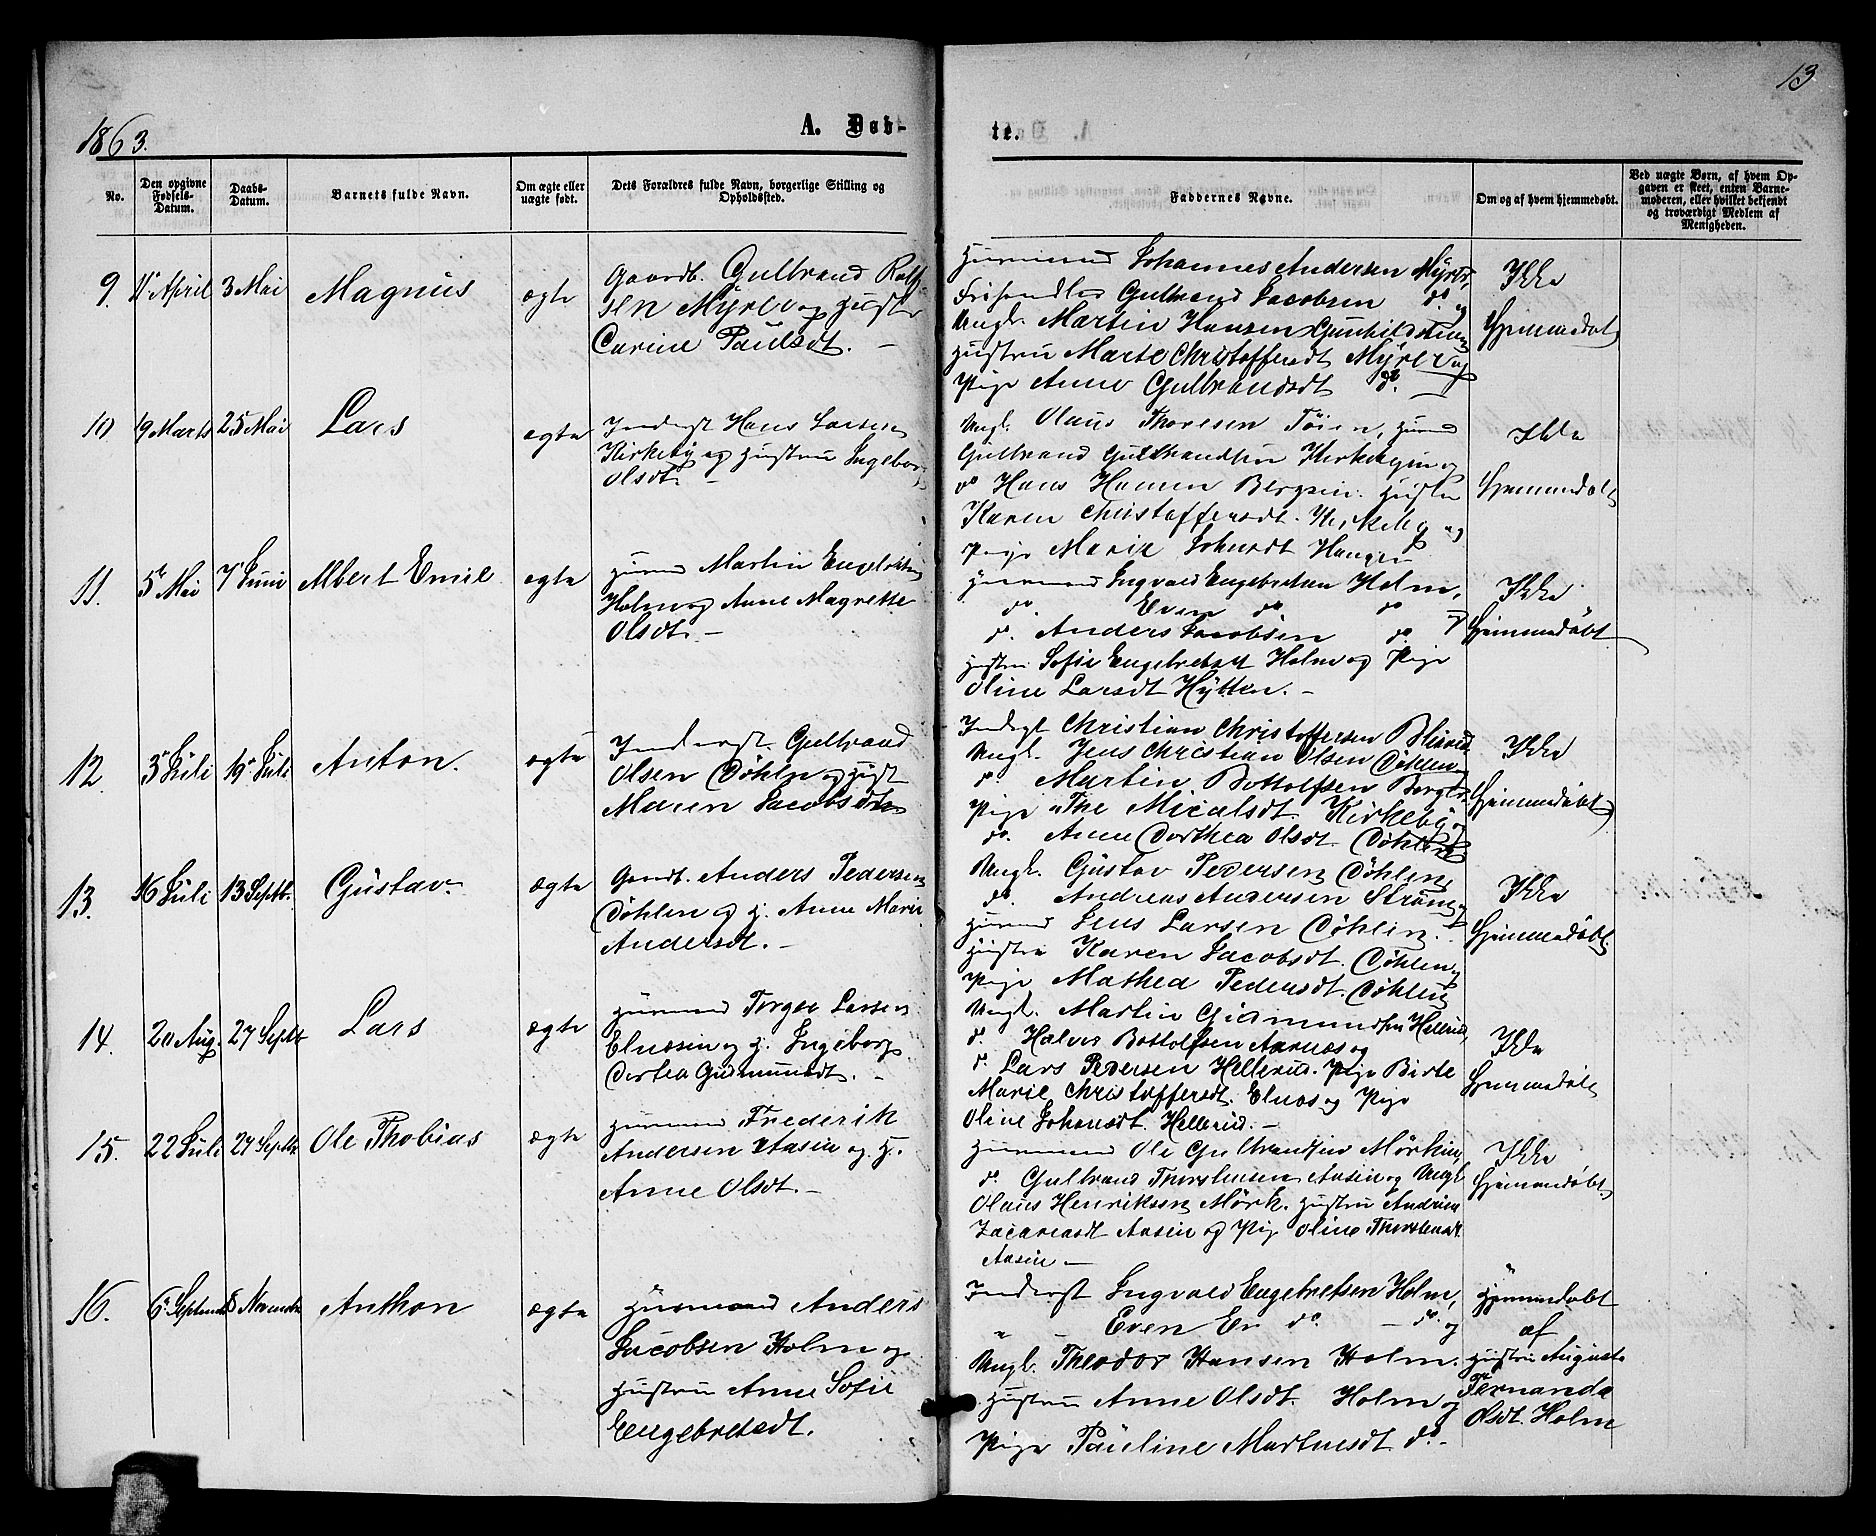 13
1863.
A. Døb-
te.
No.
Den opgivne Fødsels-Datum.
Daabs-Datum.
Barnets fulde Navn.
Om ægte eller uægte født.
Dets Forældres fulde Navn, borgerlige Stilling og Opholdssted.
Faddernes Navne.
Om og af hvem hjemmedøbt.
Ved uægte Børn, af hvem Op-
gaven er skeet, enten Barne-
moderen, eller hvilket bekjendt
og troværdigt Medlem af
Menigheden.
9. April 3 Mai Magnus ægte
Gaardb. Gulbrand Rolf-
sen Myrer og Hustr
Carine Paulsdt. -
Huusmand Johannes Andersen Myrer,
Gulbrand Jacobsen do og
Ungk. Martin Hansen
Hustru Marte Christoffersdt Myrer og
Pige Anne Gulbrandsdt do.
Ikke
Hjemmedøbt
10 9 Marts 25 Mai Lars ægte
Inderst Hans Larsen
Kirkeby og Hustru Ingeborg
Olsdt. -
Ungk. Olaus Thoresen Töien, Huusmd
Gulbrand Gulbrandsen og
do Hans Hansen Hustru
Karen Christoffersdt. Kirkeby og
Pige Marie Johnsdt Haugen
Ikke
Hjemmedøbt
11. 5 Mai 7 Juni Albert Emil ægte
Huusmd Martin Engebretsen
Holm og Anne Magrette
Olsdt. -
Huusmand Ingvald Engebretsen Holm,
do. Even do do
do. Anders Jacobsen do.
Hustru Sofie Engebretsdt Holm og Pige
Oline Larsdt Hytten. -
Ikke
Hjemmedøbt
12. 3 Juli 19 Juli Anton. ægte
Inderst. Gulbrand
Olsen Döhlen og Hust
Maren Jacobsdt
Inderst Christian Christoffersen
Ungk. Jens Christian Olsen Döhlen
do. Martin Bottolfsen
Pige Micalsdt. Kirkeby og
do. Anne Dorthea Olsdt. Döhlen
Ikke
Hjemmedøbt
13. 16 Juli 13 Septb. Gustav ægte
Gaardb. Anders Pedersen
Döhlen og H. Anne Marie
Andersdt. -
Ungk. Gustav Pedersen Döhlen,
do. Andreas Andersen Ström og
Huusmd Jens Larsen Döhlen. -
Hustru Karen Jacobsdt. Döhlen og
Pige Mathea Pedersdt. Döhlen
Ikke
Hjemmedøbt
14. 20 Aug. 27 Septbr Lars ægte
Huusmand Torger Larsen
og H. Ingeborg
Dortea Gudmundsdt. -
Ungk. Martin Gudmundsen Hellerud,
do. Halvor Bottolfsen Aarnæs og
do Lars Pedersen Hellerud. Pige Birte
Marie Christoffersdt. Elnæs og Pige
Oline Johansdt. Hellerud. -
Ikke
Hjemmedøbt
15. 22 Juli 27 Septbr Ole Thobias ægte
Huusmand Frederik
Andersen Aasen og H.
Anne Olsdt. -
Huusmand Ole Gulbrandsen
do. Gulbrand Thorstensen Aasen og Ungk
Olaus Henriksen Mörk. Hustru Andrine
Zacariasdt Aasen og Pige Oline Thorstensdt
Aasen -
Ikke
Hjemmedøbt
16. 6 September 8 November Anthon ægte
Huusmand Anders
Jacobsen Holm og
Hustru Anne Sofie
Engebretsdt.
Inderst Ingvald Engebretsen Holm,
" Even En do. - do. og
Ungk. Theodor Hansen Holm.
Hustru Anne Olsdt. Holm og
Pige Pauline Martinsdt do. -
Hjemmedøbt
af
Hustru Augusta
Fernanda
Olsdt. Holm